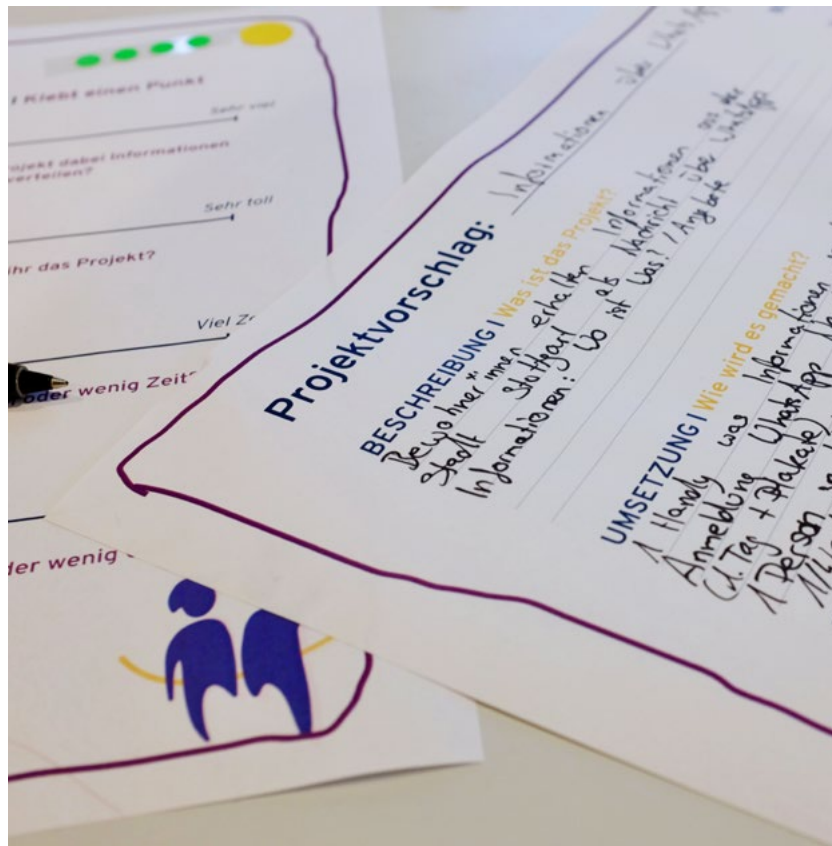 ! Klebt einen Punkt
Sehr viel
ojekt dabei Informationen
verteilen?
Sehr toll
ihr das Projekt?
Viel
oder wenig Zeit
der wenig
Projektvorschlag: Informationen über WhatsApp
BESCHREIBUNG I Was ist das Projekt?
Bewohner*innen erhalten Informationen aus der
Stadt Stuttgart als Nachricht über WhatsApp
Informationen: Wo ist was? / Angebote
UMSETZUNG I Wie wird es gemacht?
1 Handy was Informationen
Anmeldung WhatsApp
(d. Tag + Plakate)
1 Person